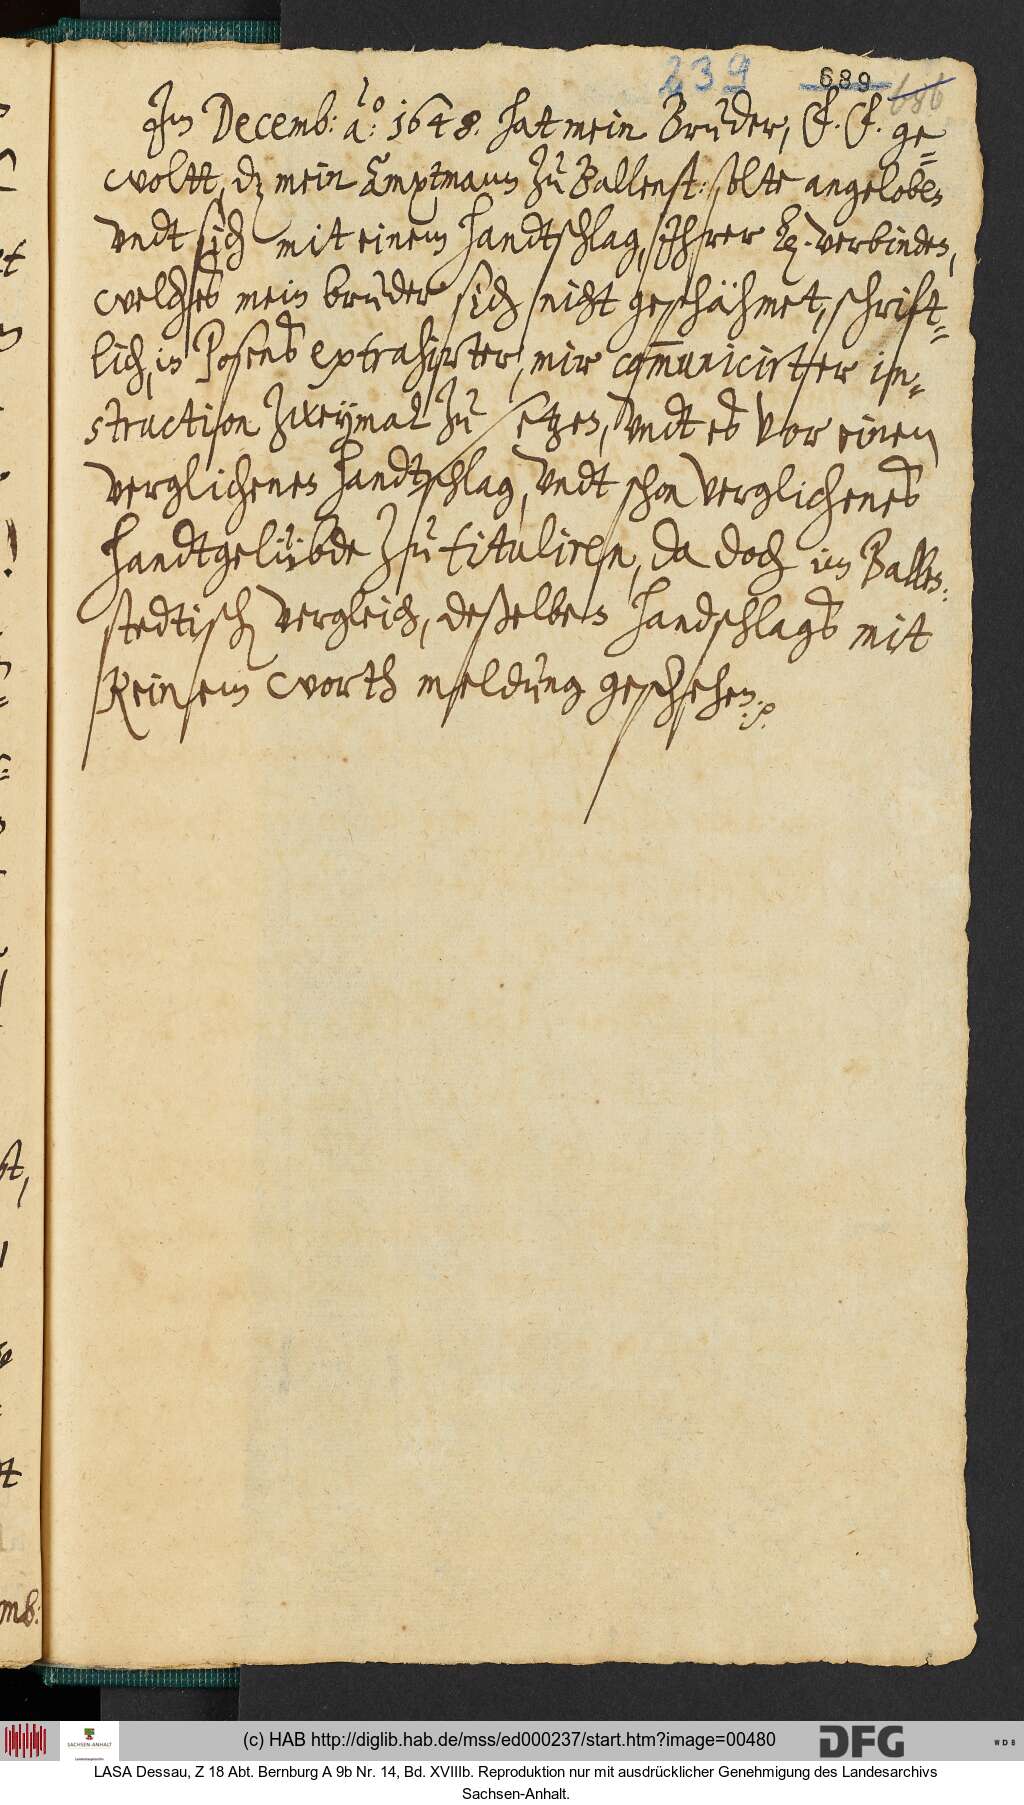 239 689 686
Jm Decemb: a:o 1648. hat mein Bruder, F. F. ge=
woltt, dz mein Amptmann zu Ballenst: solte angeloben
vndt sich mit einem handtschlag, Jhrer verbinden,
welches mein bruder sich nicht geschähmet, schrift=
lich, in Posens extrahirter, mir communicirtter in=
struction zweymal zu setzen, vndt es vor einen
verglichenen handtschlag, vndt schon verglichenes
handtgelübde zu tituliren, da doch im Ballen:
stedtisch vergleich, deßelben handschlags mit
keinem worth meldung geschehen. p.
mb:
(c) HAB http://diglib.hab.de/mss/ed000237/start.htm?image=00480
SACHSEN-ANHALT
DFG
WDB
LASA Dessau, Z 18 Abt. Bernburg A 9b Nr. 14, Bd. XVIIIb. Reproduktion nur mit ausdrücklicher Genehmigung des Landesarchivs
Sachsen-Anhalt.